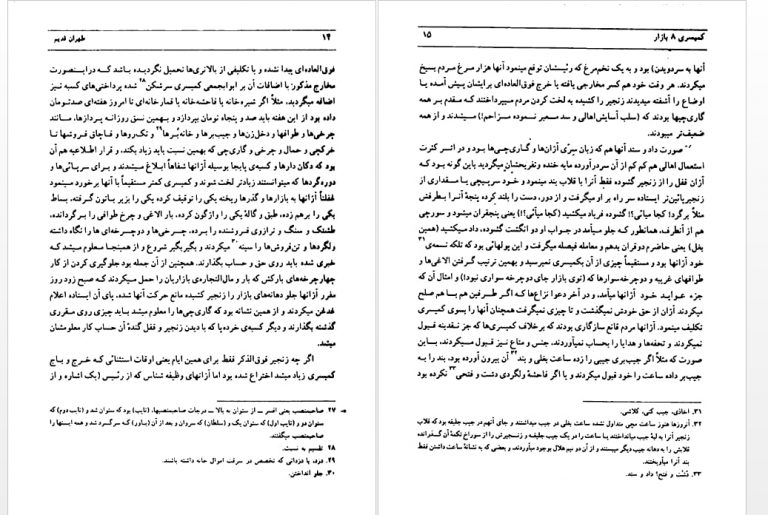 ۱۴ طهران قدیم
فوق‌العاده‌ای پیدا نشده و با تکلیفی از بالاتری‌ها تحمیل نگردیده باشد که در اینصورت
مخارج مذکور با اضافات آن بر ابوابجمعی کمیسری سرشکن۲۸ شده پرداختی‌های کسبه نیز
اضافه میگردید. مثلاً اگر شیره‌خانه یا فاحشه‌خانه یا قمارخانه‌ای تا امروز هفته‌ای صدتومان
داده بود از این هفته باید صد و پنجاه تومان بپردازد و بهمین نسق روزانه بپردازها، مانند
چرخی‌ها و طوافها و دخل‌زن‌ها و جیب‌برها و خانه‌بُرها۲۹ و تک‌روها و قاچاق فروشها تا
خرکچی و حمال و چرخی و گاری‌چی که بهمین نسبت باید زیاد بکند. و قرار اطلاعیه هم آن
بود که دکان دارها و کسبه‌ی پابجا بوسیله آژانها شفاهاً ابلاغ میشدند و برای سرپائی‌ها و
دوره‌گردها که میتوانستند زیادتر لخت شوند و کمیسری کمتر مستقیماً با آنها برخورد مینمود
غفلتاً آژانها به بازارها و گذرها ریخته یکی را توقیف کرده یکی را بزیر باتون گرفته، بساط
یکی را برهم زده، طبق و گالهٔ یکی را واژگون کرده، بار الاغی و چرخ طوافی را برگردانده،
طشتک و سنگ و ترازوی فروشنده را برده، چرخی‌ها و دوچرخه‌ای‌ها را نگاه داشته
ولگردها و تن‌فروش‌ها را سینه۳۰ میکردند و بگیربگیر شروع و از همینجا معلوم میشد که
خبری شده باید روی حق و حساب بگذارند. همچنین از آن جمله بود جلوگیری کردن از کار
چهارچرخه‌های بارکش که بار و مال‌التجاره‌ی بازاریان را حمل میکردند که صبح زود روز
مقرر آژانها جلو دهانه‌های بازار را زنجیر کشیده مانع حرکت آنها شده، پای آن ایستاده اعلام
غدغن میکردند و از همین نشانه بود که گاری‌چی‌ها را معلوم میشد باید چیزی روی مقرری
گذشته بگذارند و دیگر کسبه‌ی خرده‌پا که با دیدن زنجیر و قفل گندهٔ آن حساب کار معلومشان
میشد.
اگر چه زنجیر فوق‌الذکر فقط برای همین ایام یعنی اوقات استثنائی که خرج و باج
کمیسری زیاد میشد اختراع شده بود اما آژانهای وظیفه شناس که از رئیس (یک اشاره و از
۲۷ صاحبمنصب یعنی افسر ــ از ستوان به بالا ــ درجات صاحبمنصبها، (نایب) بود که ستوان شد و (نایب دوم) که
ستوان دو و (نایب اول) که ستوان یک و (سلطان) که سروان و بعد از آن (یاور) که سرگرد شد و همه اینها را
صاحبمنصب میگفتند.
۲۸ تقسیم به نسبت.
۲۹. دزد، یا دزدانی که تخصص در سرقت اموال خانه داشته باشند.
۳۰. جلو انداختن.
کمیسری ۸ بازار ۱۵
آنها به سردویدن) بود و به یک تخم‌مرغ که رئیسشان توقع مینمود آنها هزار مرغ مردم بسیخ
میکردند. هر وقت خود هم کسر مخارجی یافته یا خرج فوق‌العاده‌ای برایشان پیش آمده یا
اوضاع را آشفته میدیدند زنجیر را کشیده به لخت کردن مردم میپرداختند که مقدم بر همه
گاری‌چیها بودند که (سلب آسایش اهالی و سد معبر نموده مزاحم!) میشدند و از همه
ضعیف‌تر میبودند.
صورت داد و ستد آنها هم که زبان سِرّی آژان‌ها و گاری‌چی‌ها بود و در اثر کثرت
استعمال اهالی هم کم کم از آن سردرآورده مایه خنده و تفریحشان میگردید باین گونه بود که
آژان قفل را از زنجیر گشوده فقط آنرا با قلاب بند مینمود و خود سرپیچی یا مقداری از
زنجیرپائین‌تر ایستاده سر راه بر او میگرفت و از دور، دست را بلند کرده پنجهٔ آنرا بطرفش
مثلاً برگد! کجا میآئی؟! گشوده فریاد میکشید (کجا میآئی؟!) یعنی پنجقران میشود و سورچی
هم از آنطرف، همانطور که جلو میآمد در جواب او دو انگشت گشوده، داد میکشید (همین
بغل) یعنی حاضرم دوقران بدهم و معامله فیصله میگرفت و این پولهائی بود که تلکه تسمه‌ی۳۱
خود آژانها بود و مستقیماً چیزی از آن بکمیسری نمیرسید و بهمین ترتیب گرفتن الاغی‌ها و
طوافهای غریبه و دوچرخه‌سوارها که (توی بازار جای دوچرخه سواری نبود!) و امثال آن که
جزء عواید خود آژانها میآمد. و در آخر دعوا نزاع‌ها که اگر طرفین هم با هم صلح
میکردند آژان از حق خودش نمیگذشت و تا چیزی نمیگرفت همچنان آنها را بسوی کمیسری
تکلیف مینمود. آژانها مردم قانع سازگاری بودند که برخلاف کمیسری‌ها که جز نقدینه قبول
نمیکردند و تحفه‌ها و هدایا را بحساب نمیآوردند، جنس و متاع نیز قبول میکردند، باین
صورت که مثلاً اگر جیب‌بری جیبی را زده ساعت بغلی و بند۳۲ آن بیرون آورده بود، بند را به
جیب‌بر داده ساعت را خود قبول میکردند و یا اگر فاحشهٔ ولگردی دشت و فتحی۳۳ نکرده بود
۳۱. اخاذی، جیب کنی، کلاشی.
۳۲. آنروزها هنوز ساعت مچی متداول نشده ساعت بغلی در جیب میداشتند و جای آنهم در جیب جلیقه بود که قلاب
زنجیر آنرا به لبهٔ جیب میانداختند یا ساعت را در یک جیب جلیقه و زنجیرش را از سوراخ تکمهٔ آن گذرانده
قلابش را به دهانه جیب دیگر میبستند و از آن دو نیم هلال بوجود میآوردند، و بعضی که به نشانهٔ ساعت داشتن فقط
بند آنرا میآویختند.
۳۳ دَشت و فتح! داد و ستد.